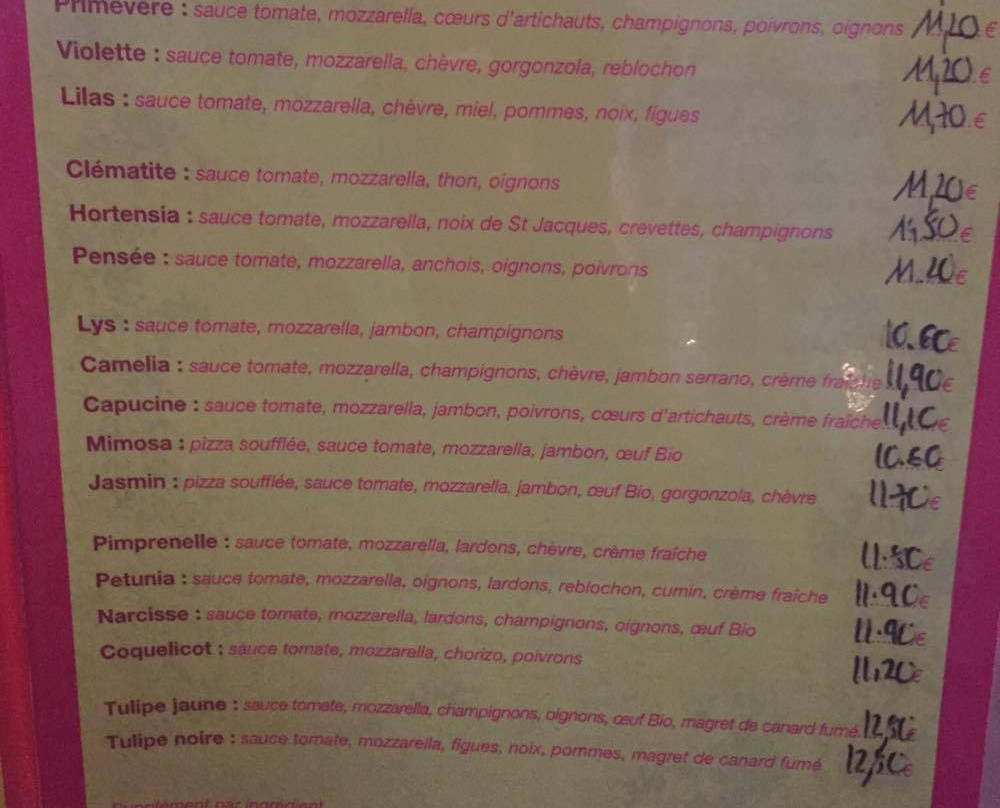 Primevère : sauce tomate, mozzarella, cœurs d'artichauts, champignons, poivrons, oignons 11,20 €
Violette : sauce tomate, mozzarella, chèvre, gorgonzola, reblochon 11,20 €
Lilas : sauce tomate, mozzarella, chèvre, miel, pommes, noix, figues 11,70 €
Clématite : sauce tomate, mozzarella, thon, oignons 11,20 €
Hortensia : sauce tomate, mozzarella, noix de St Jacques, crevettes, champignons €
Pensée : sauce tomate, mozzarella, anchois, oignons, poivrons 11.20 €
Lys : sauce tomate, mozzarella, jambon, champignons 10.60 €
Camelia : sauce tomate, mozzarella, champignons, chèvre, jambon serrano, crème fraîche 11,90 €
Capucine : sauce tomate, mozzarella, jambon, poivrons, cœurs d'artichauts, crème fraîche 11,10 €
Mimosa : pizza soufflée, sauce tomate, mozzarella, jambon, œuf Bio 10.60
Jasmin : pizza soufflée, sauce tomate, mozzarella, jambon, œuf Bio, gorgonzola, chèvre 11.70 €
Pimprenelle : sauce tomate, mozzarella, lardons, chèvre, crème fraîche €
Petunia : sauce tomate, mozzarella, oignons, lardons, reblochon, cumin, crème fraîche 11.90 €
Narcisse : sauce tomate, mozzarella, lardons, champignons, oignons, œuf Bio 11.90 €
Coquelicot : sauce tomate, mozzarella, chorizo, poivrons 11,20 €
Tulipe jaune : sauce tomate, mozzarella, champignons, oignons, œuf Bio, magret de canard fumé 12,50 €
Tulipe noire : sauce tomate, mozzarella, figues, noix, pommes, magret de canard fumé 12,50 €
Supplément par ingrédient